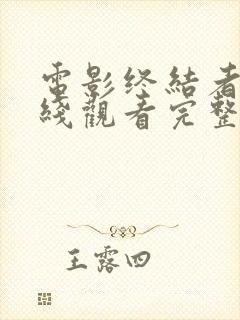 電影终結者
綫觀看完整
王露四